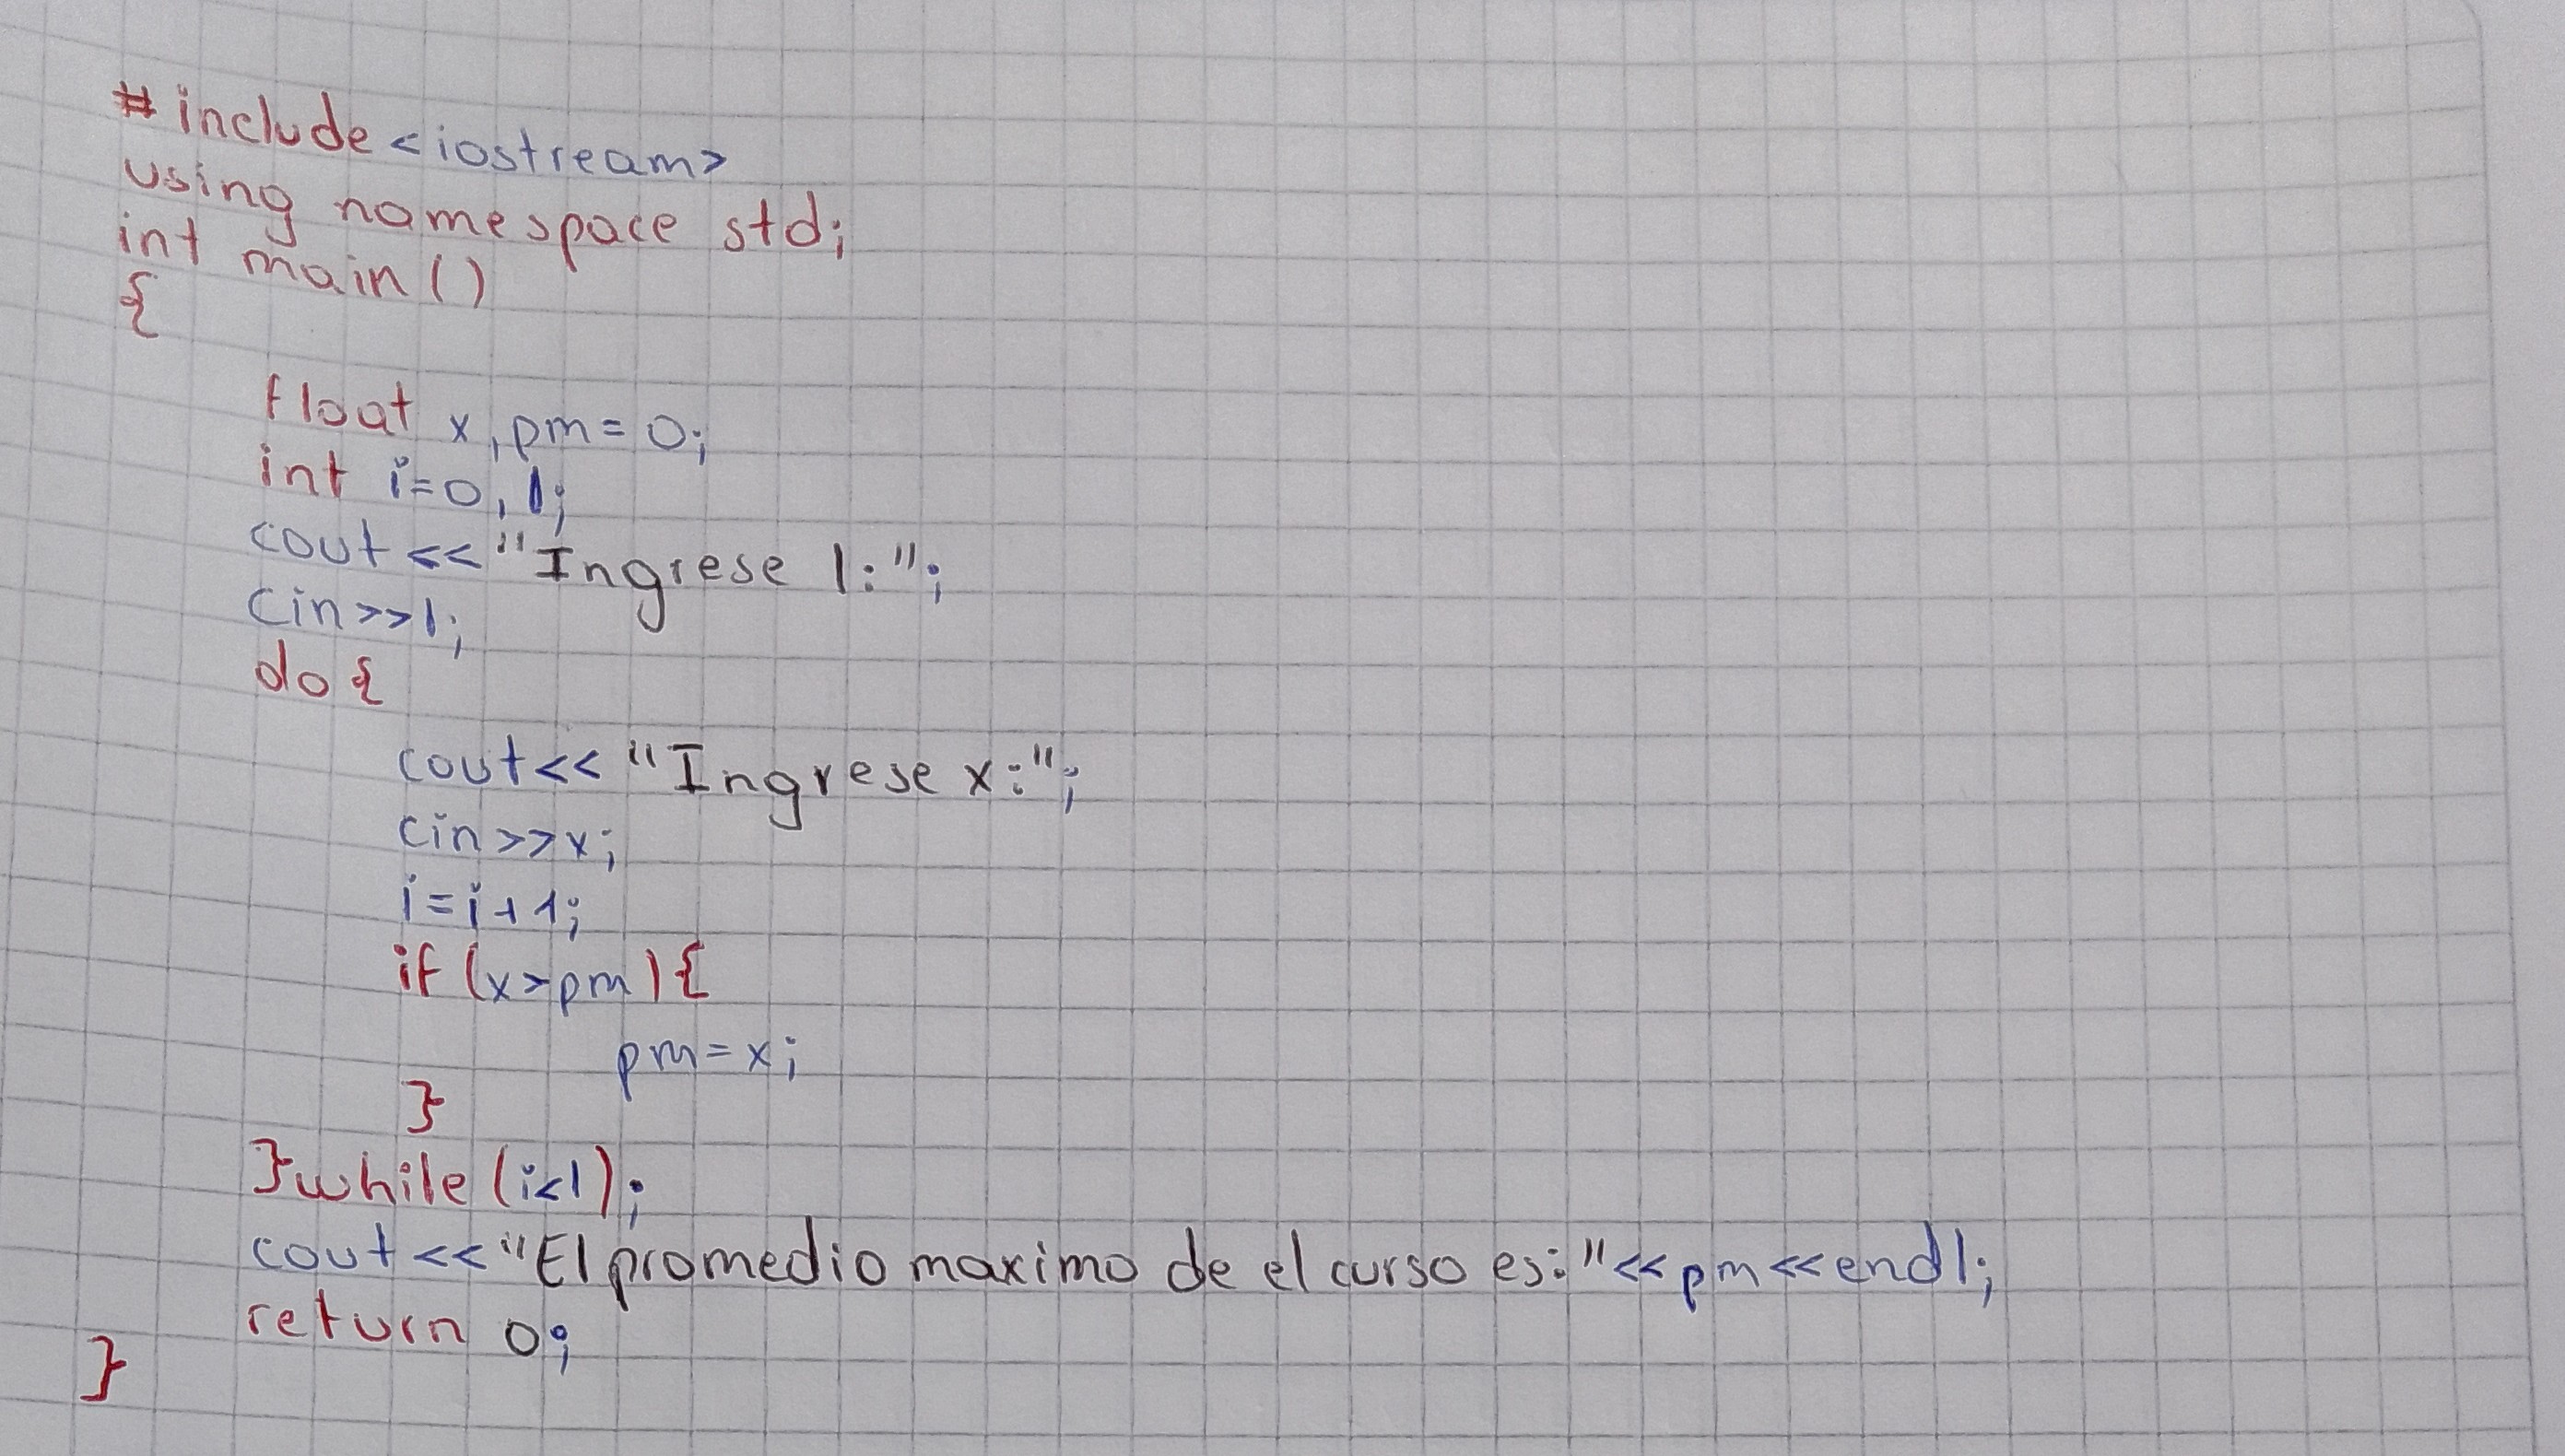 #include<iostream>
using namespace std;
int main()
{
float x,pm=0;
int i=0,l;
cout<<"Ingrese l:";
cin>>l;
do{
cout<<"Ingrese x:";
cin>>x;
i=i+1;
if(x>pm){
pm=x;
}
}while(i<l);
cout<<"El promedio maximo de el curso es:"<<pm<<endl;
return 0;
}